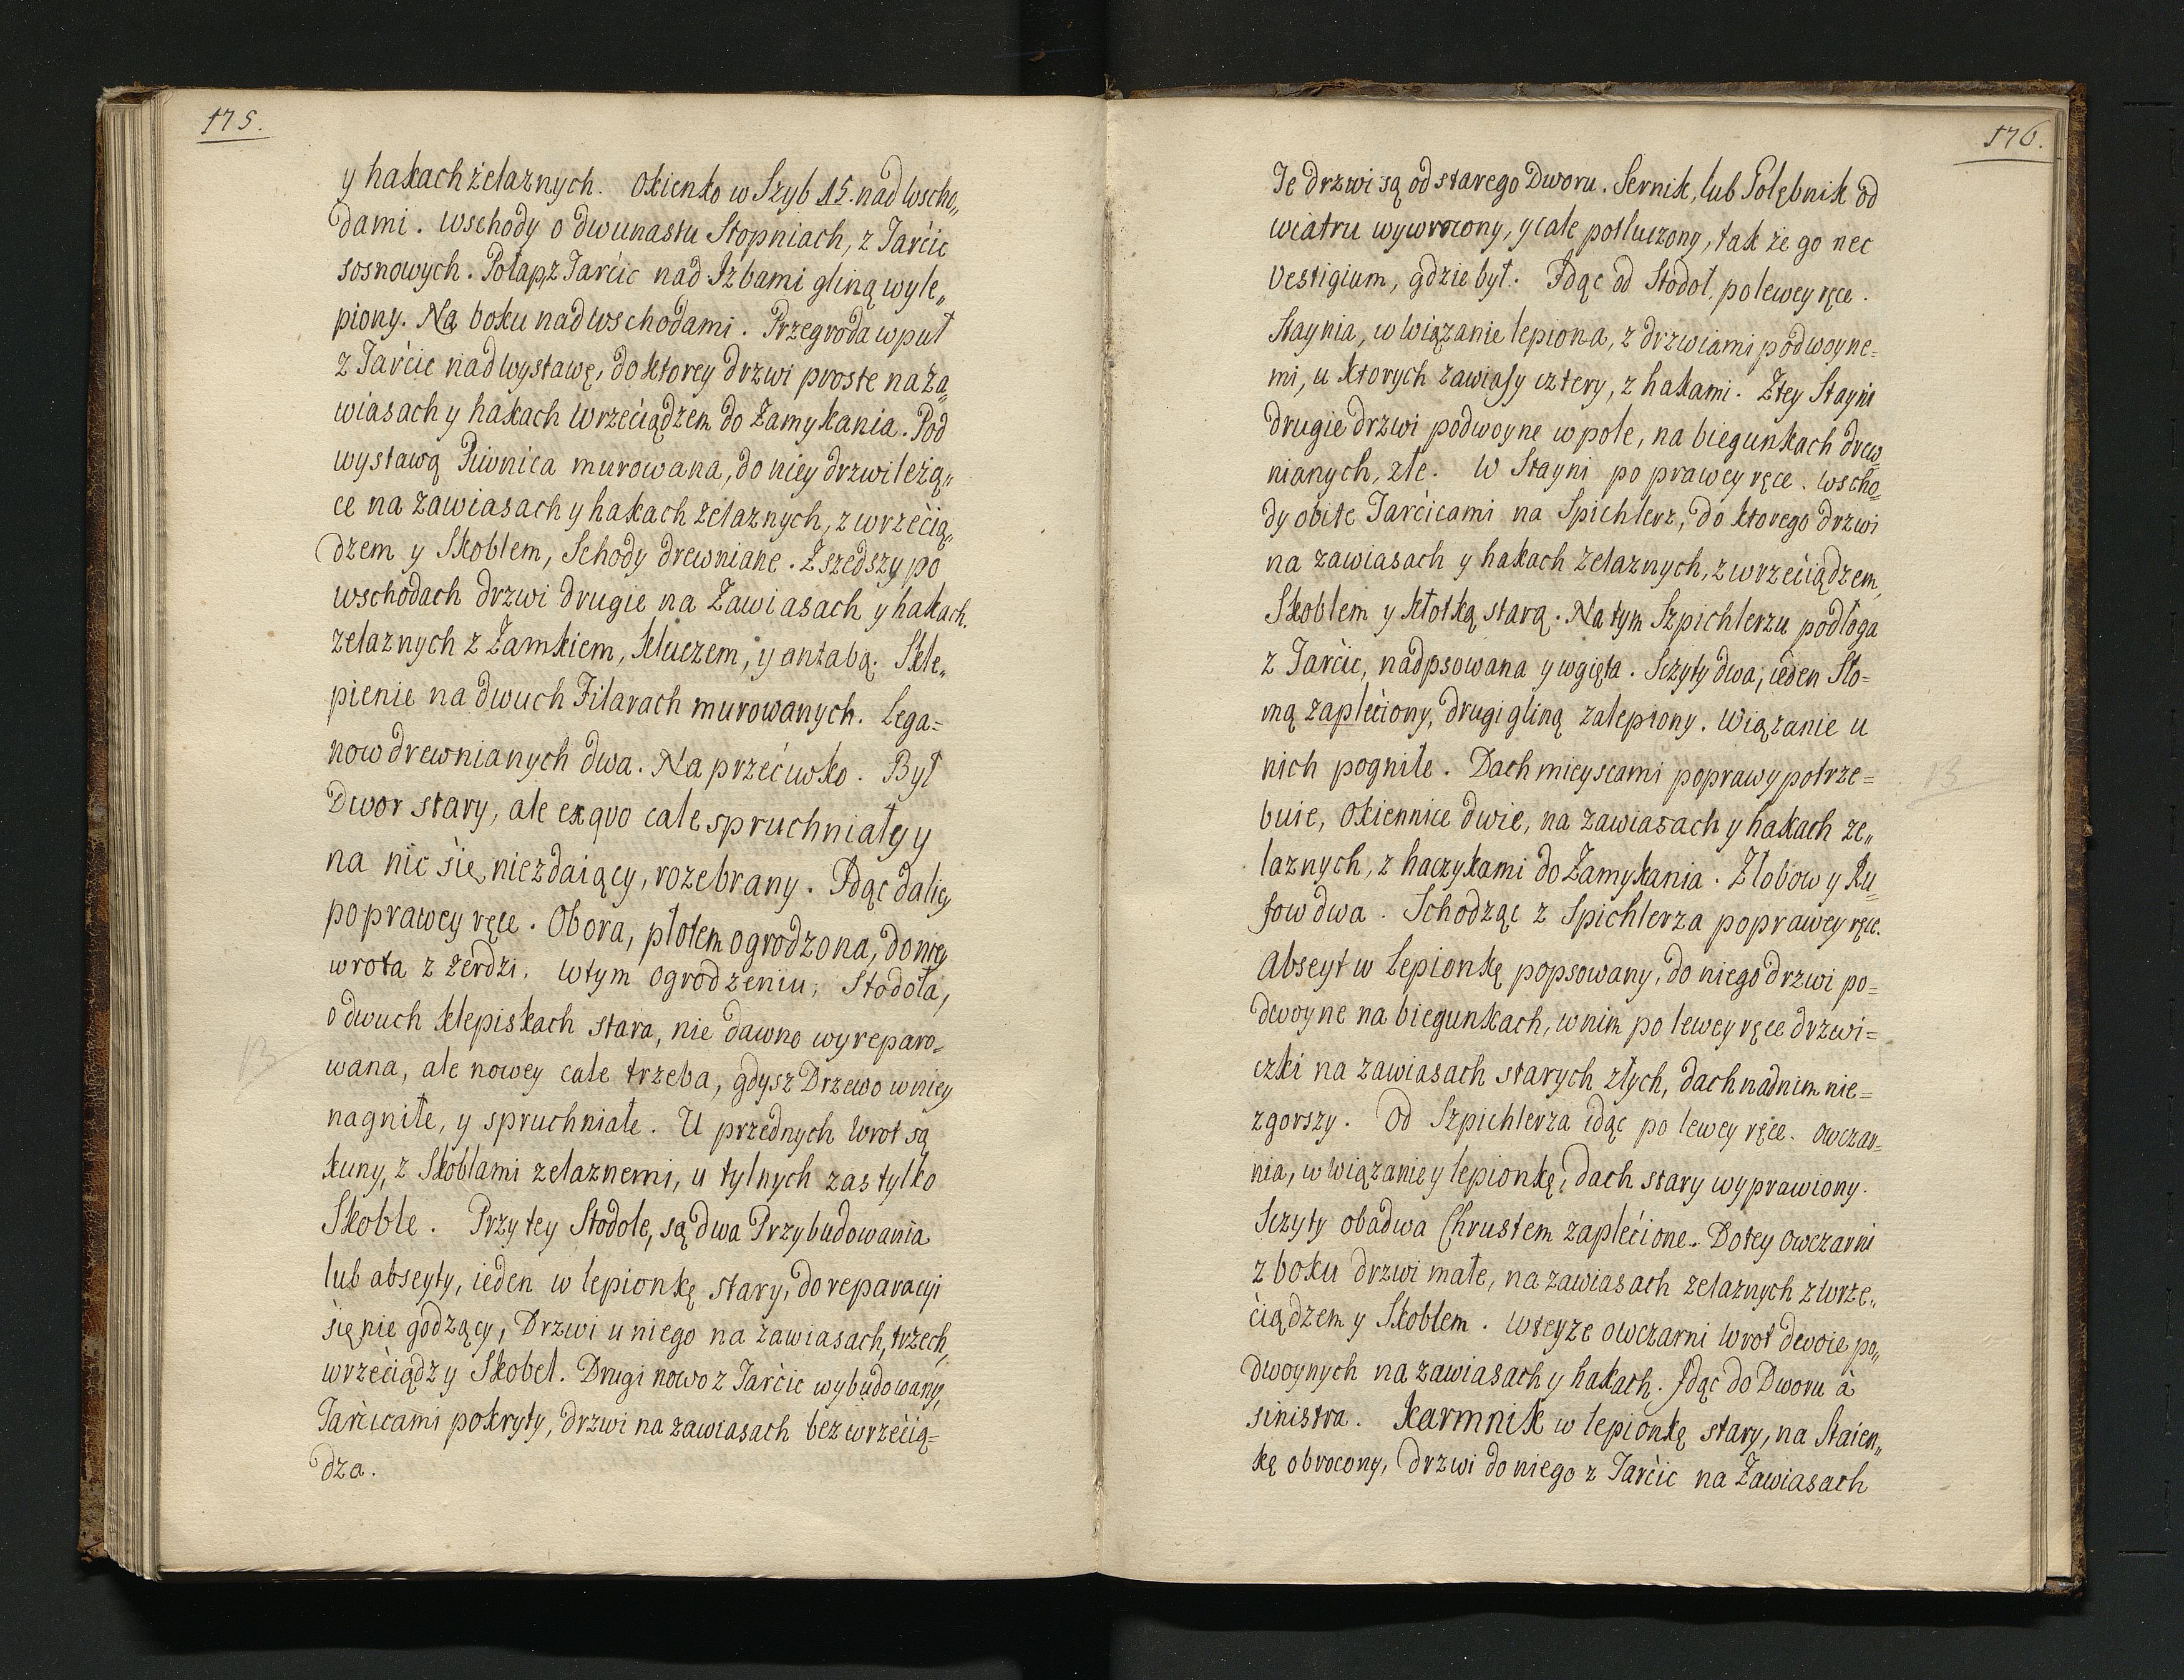 175.
y hakach żelaznych. Okienko w Szyb 15. nad Wscho„
dami. Wschody o dwunastu Stopniach, z Tarcic
sosnowych. Połap z Tarcic nad Izbami gliną wyle„
piony. Na boku nad Wschodami. Przegroda w puł
z Tarcic nad Wystawę, do ktorey drzwi proste na za„
wiasach y hakach Wrzeciądzem do Zamykania. Pod
wystawą Piwnica murowana, do niey drzwi leżą„
ce na zawiasach y hakach żelaznych, z wrzecią„
dzem y Skoblem, Schody drewniane. Zszedszy po
wschodach drzwi drugie na Zawiasach y hakach.
zelaznych z Zamkiem, Kluczem, y antabą. Skle„
pienie na dwuch Filarach murowanych. Lega=
now drewnianych dwa. Na przećiwko. Był
Dwor stary, ale ex quo cale spruchniały y
na nic się niezdaiący, rozebrany. Idąc daliey
po prawey ręce. Obora, płotem ogrodzona, do niey
wrota z żerdzi. W tym ogrodzeniu, Stodoła,
o dwuch klepiskach stara, nie dawno wyreparo„
wana, ale nowey cale trzeba, gdysz Drzewo w niey
nagniłe, y spruchniałe. U przednych Wrot są
kuny, z Skoblami zelaznemi, u tylnych zas tylko
Skoble. Przy tey Stodole, są dwa Przybudowania
lub abseyty, ieden w lepionkę stary, do reparacyi
się nie godzący, Drzwi u niego na zawiasach, trzech,
wrzeciądz y Skobel. Drugi nowo z Tarcic wybudowany,
Tarcicami pokryty, drzwi na zawiasach bez wrzecią=
dza.
13
176.
Te drzwi są od starego Dworu. Sernik, lub Gołębnik od
wiatru wywrocony, y cale potłuczony, tak że go nec
Vestigium, gdzie był. Idąc od Stodoł, po lewey ręce.
Staynia, w Wiązanie lepiona, z drzwiami podwoyne=
mi, u ktorych zawiasy cztery, z hakami. Z tey Stayni
drugie drzwi podwoyne w pole, na biegunkach drew„
nianych, złe. W Stayni po prawey ręce. Wscho„
dy obite Tarcicami na Spichlerz, do ktorego drzwi
na zawiasach y hakach żelaznych, z wrzeciądzem,
Skoblem y kłotką starą. Na tym Szpichlerzu podłoga
z Tarcic, nadpsowana y wgięta. Sczyty dwa, ieden Sło=
mą zaplećiony, drugi gliną zalepiony. Wiązanie u
nich pogniłe. Dach mieyscami poprawy potrze=
buie, Okiennice dwie, na zawiasach y hakach że„
laznych, z haczykami do Zamykania. Złobow y Ku„
fow dwa. Schodząc z Spichlerza po prawey ręce.
Abseyt w Lepionkę popsowany, do niego drzwi po=
dwoyne na biegunkach, w nim po lewey ręce drzwi=
czki na zawiasach starych złych, dach nad nim nie=
zgorszy. Od Szpichlerza idąc po lewey ręce. Owczar„
nia, w Wiązanie y lepionkę, dach stary wyprawiony.
Sczyty obadwa Chrustem zaplećione. Do tey owczarni
z boku drzwi małe, na zawiasach zelaznych z Wrze„
ciądzem y Skoblem. W teyze owczarni Wrot dwoie po„
dwoynych na zawiasach y hakach. Idąc do Dworu à
sinistra. Karmnik w lepionkę stary, na Staien„
kę obrocony, drzwi do niego z Tarcic na Zawiasach